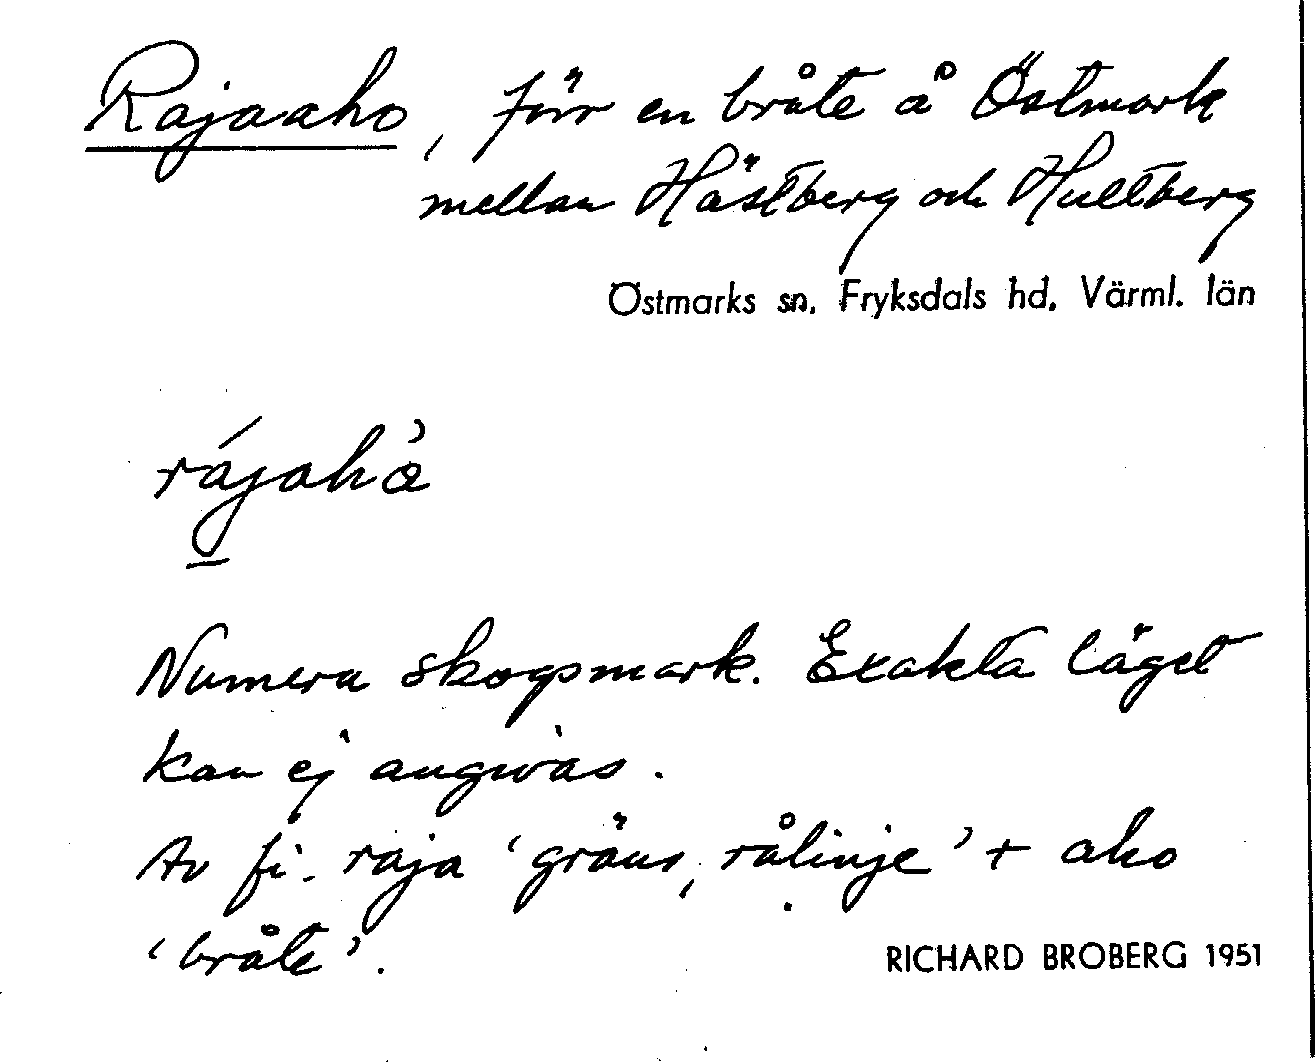 Rajaaho, förr en bråte å Östmark
mellan Hästberg och Hultberg
Östmarks sn. Fryksdals hd. Värml. län
rájahà̊
Numera skogsmark. Exakta läget
kan ej angivas.
Av fi. raja 'gräns, rålinje' + aho
'bråte'.
RICHARD BROBERG 1951